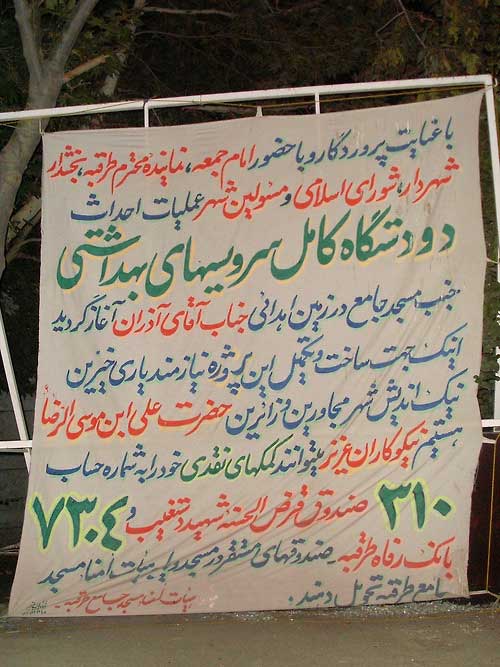 با عنایت پروردگار و با حضور امام جمعه، نماینده محترم طرقبه، بخشدار
شهردار، شورای اسلامی و مسولین شهر عملیات احداث
دو دستگاه کامل سرویسهای بهداشتی
جنب مسجد جامع در زمین اهدائی جناب آقای آذران آغاز گردید
اینک جهت ساخت و تکمیل این پروژه نیازمند یاری خیرین
نیک اندیش شهر مجاورین و زائرین حضرت علی ابن موسی الرضا
هستیم نیکوکاران عزیز میتوانند کمکهای نقدی خود را به شماره حساب
۳۱۰ صندوق قرض الحسنه شهید دستغیب و ۷۳۰۴
بانک رفاه طرقبه _ صندوقهای مستقر در مسجد و یا بهیات امنا مسجد
جامع طرقبه تحویل دهند.
هیات امنا مسجد جامع طرقبه _